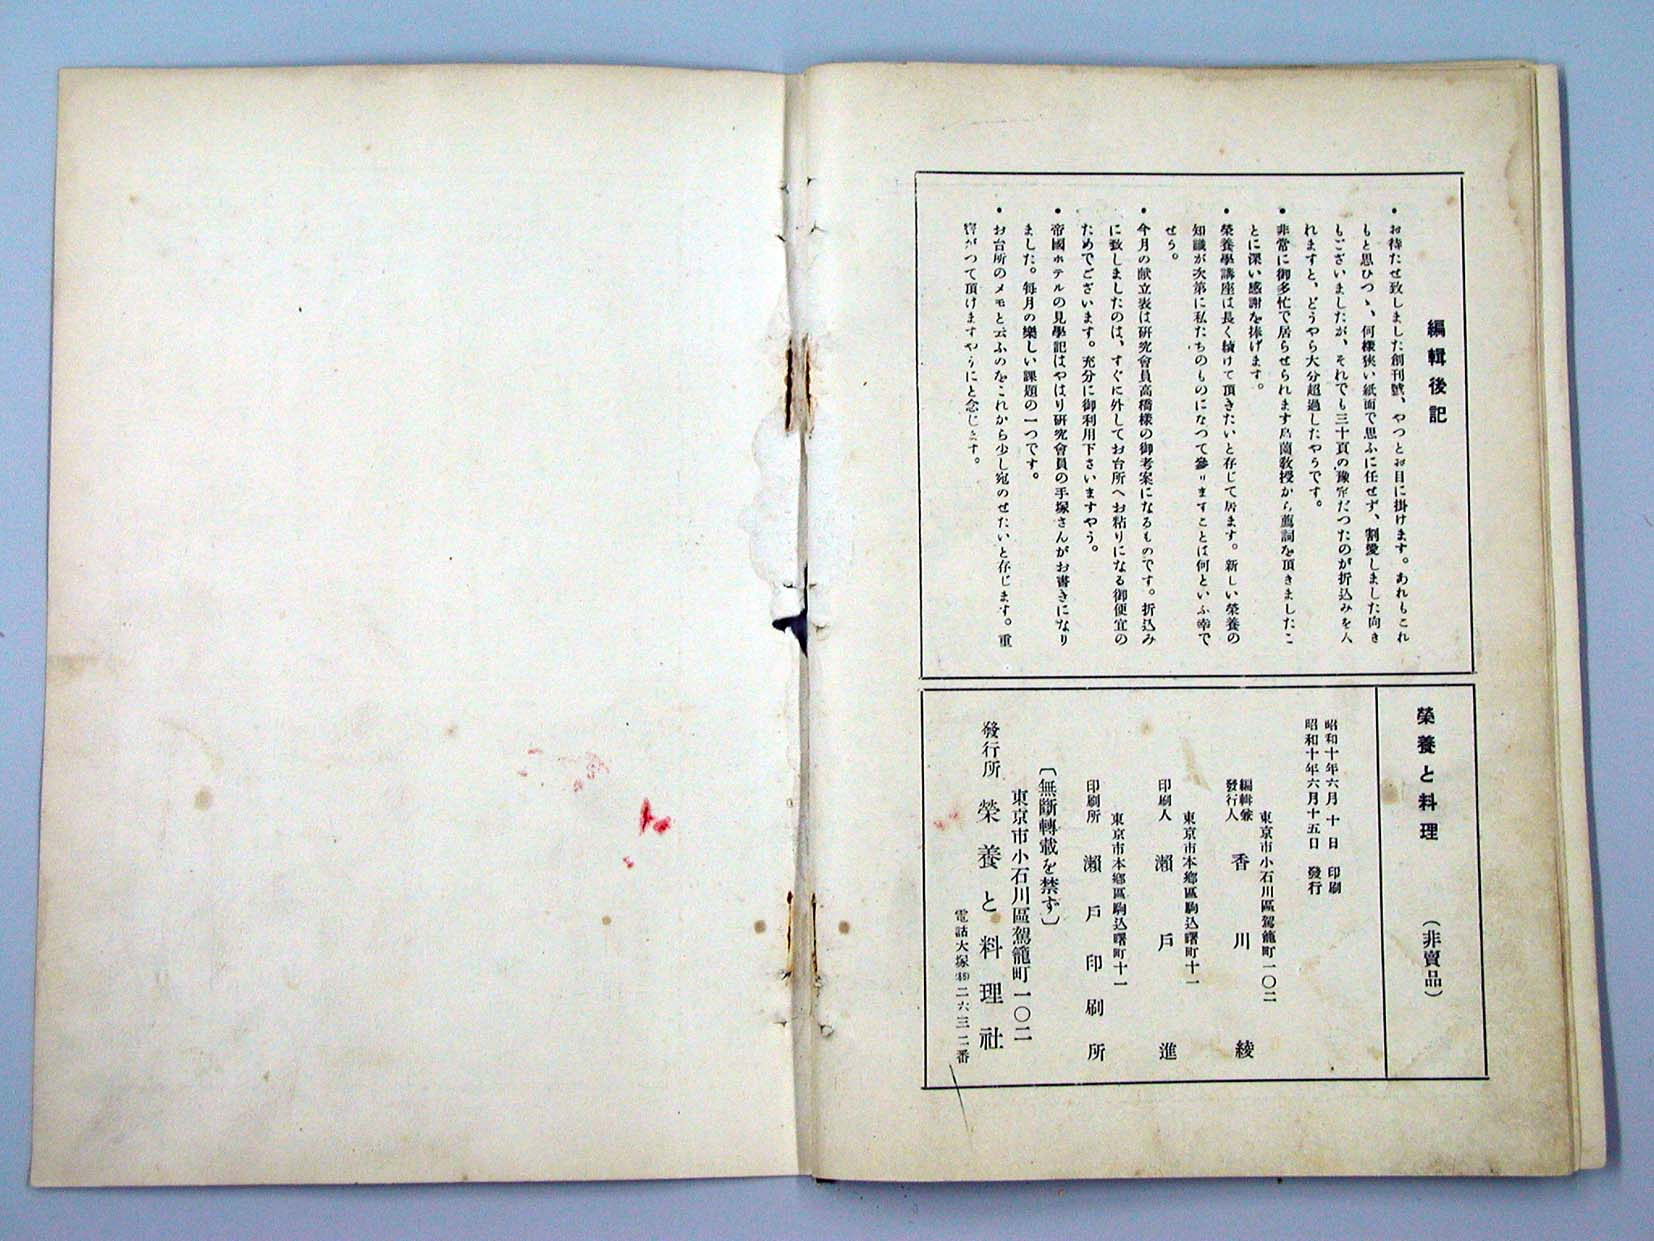 編輯後記
・お待たせ致しました創刊號、やつとお目に掛けます。あれもこれ
もと思ひつゝ、何樣狹い紙面で思ふに任せず、割愛しました向き
もございましたが、それでも三十頁の豫定だつたのが折込みを入
れますと、どうやら大分超過したやうです。
・非常に御多忙で居らせられます島薗教授から薦詞を頂きましたこ
とに深い感謝を捧げます。
・榮養學講座は長く續けて頂きたいと存じて居ます。新しい榮養の
知識が次第に私たちのものになつて參りますことは何といふ幸で
せう。
・今月の献立表は研究會員高橋樣の御考案になるものです。折込み
に致しましたのは、すぐに外してお台所へお粘りになる御便宜の
ためでございます。充分に御利用下さいますやう。
・帝國ホテルの見學記はやはり研究會員の手塚さんがお書きになり
ました。毎月の樂しい課題の一つです。
・お台所のメモと云ふのをこれから少し宛のせたいと存じます。重
寶がつて頂けますやうにと念じます。
榮養と料理 (非賣品)
昭和十年六月十日 印刷
昭和十年六月十五日 發行
東京市小石川區駕籠町一〇二
編輯兼發行人 香川綾
東京市本鄕區駒込曙町十一
印刷人 瀨戶進
東京市本鄕區駒込曙町十一
印刷所 瀨戶印刷所
〔無斷轉載を禁ず〕
東京市小石川區駕籠町一〇二
發行所 榮養と料理社
電話大塚(86)二六三二番